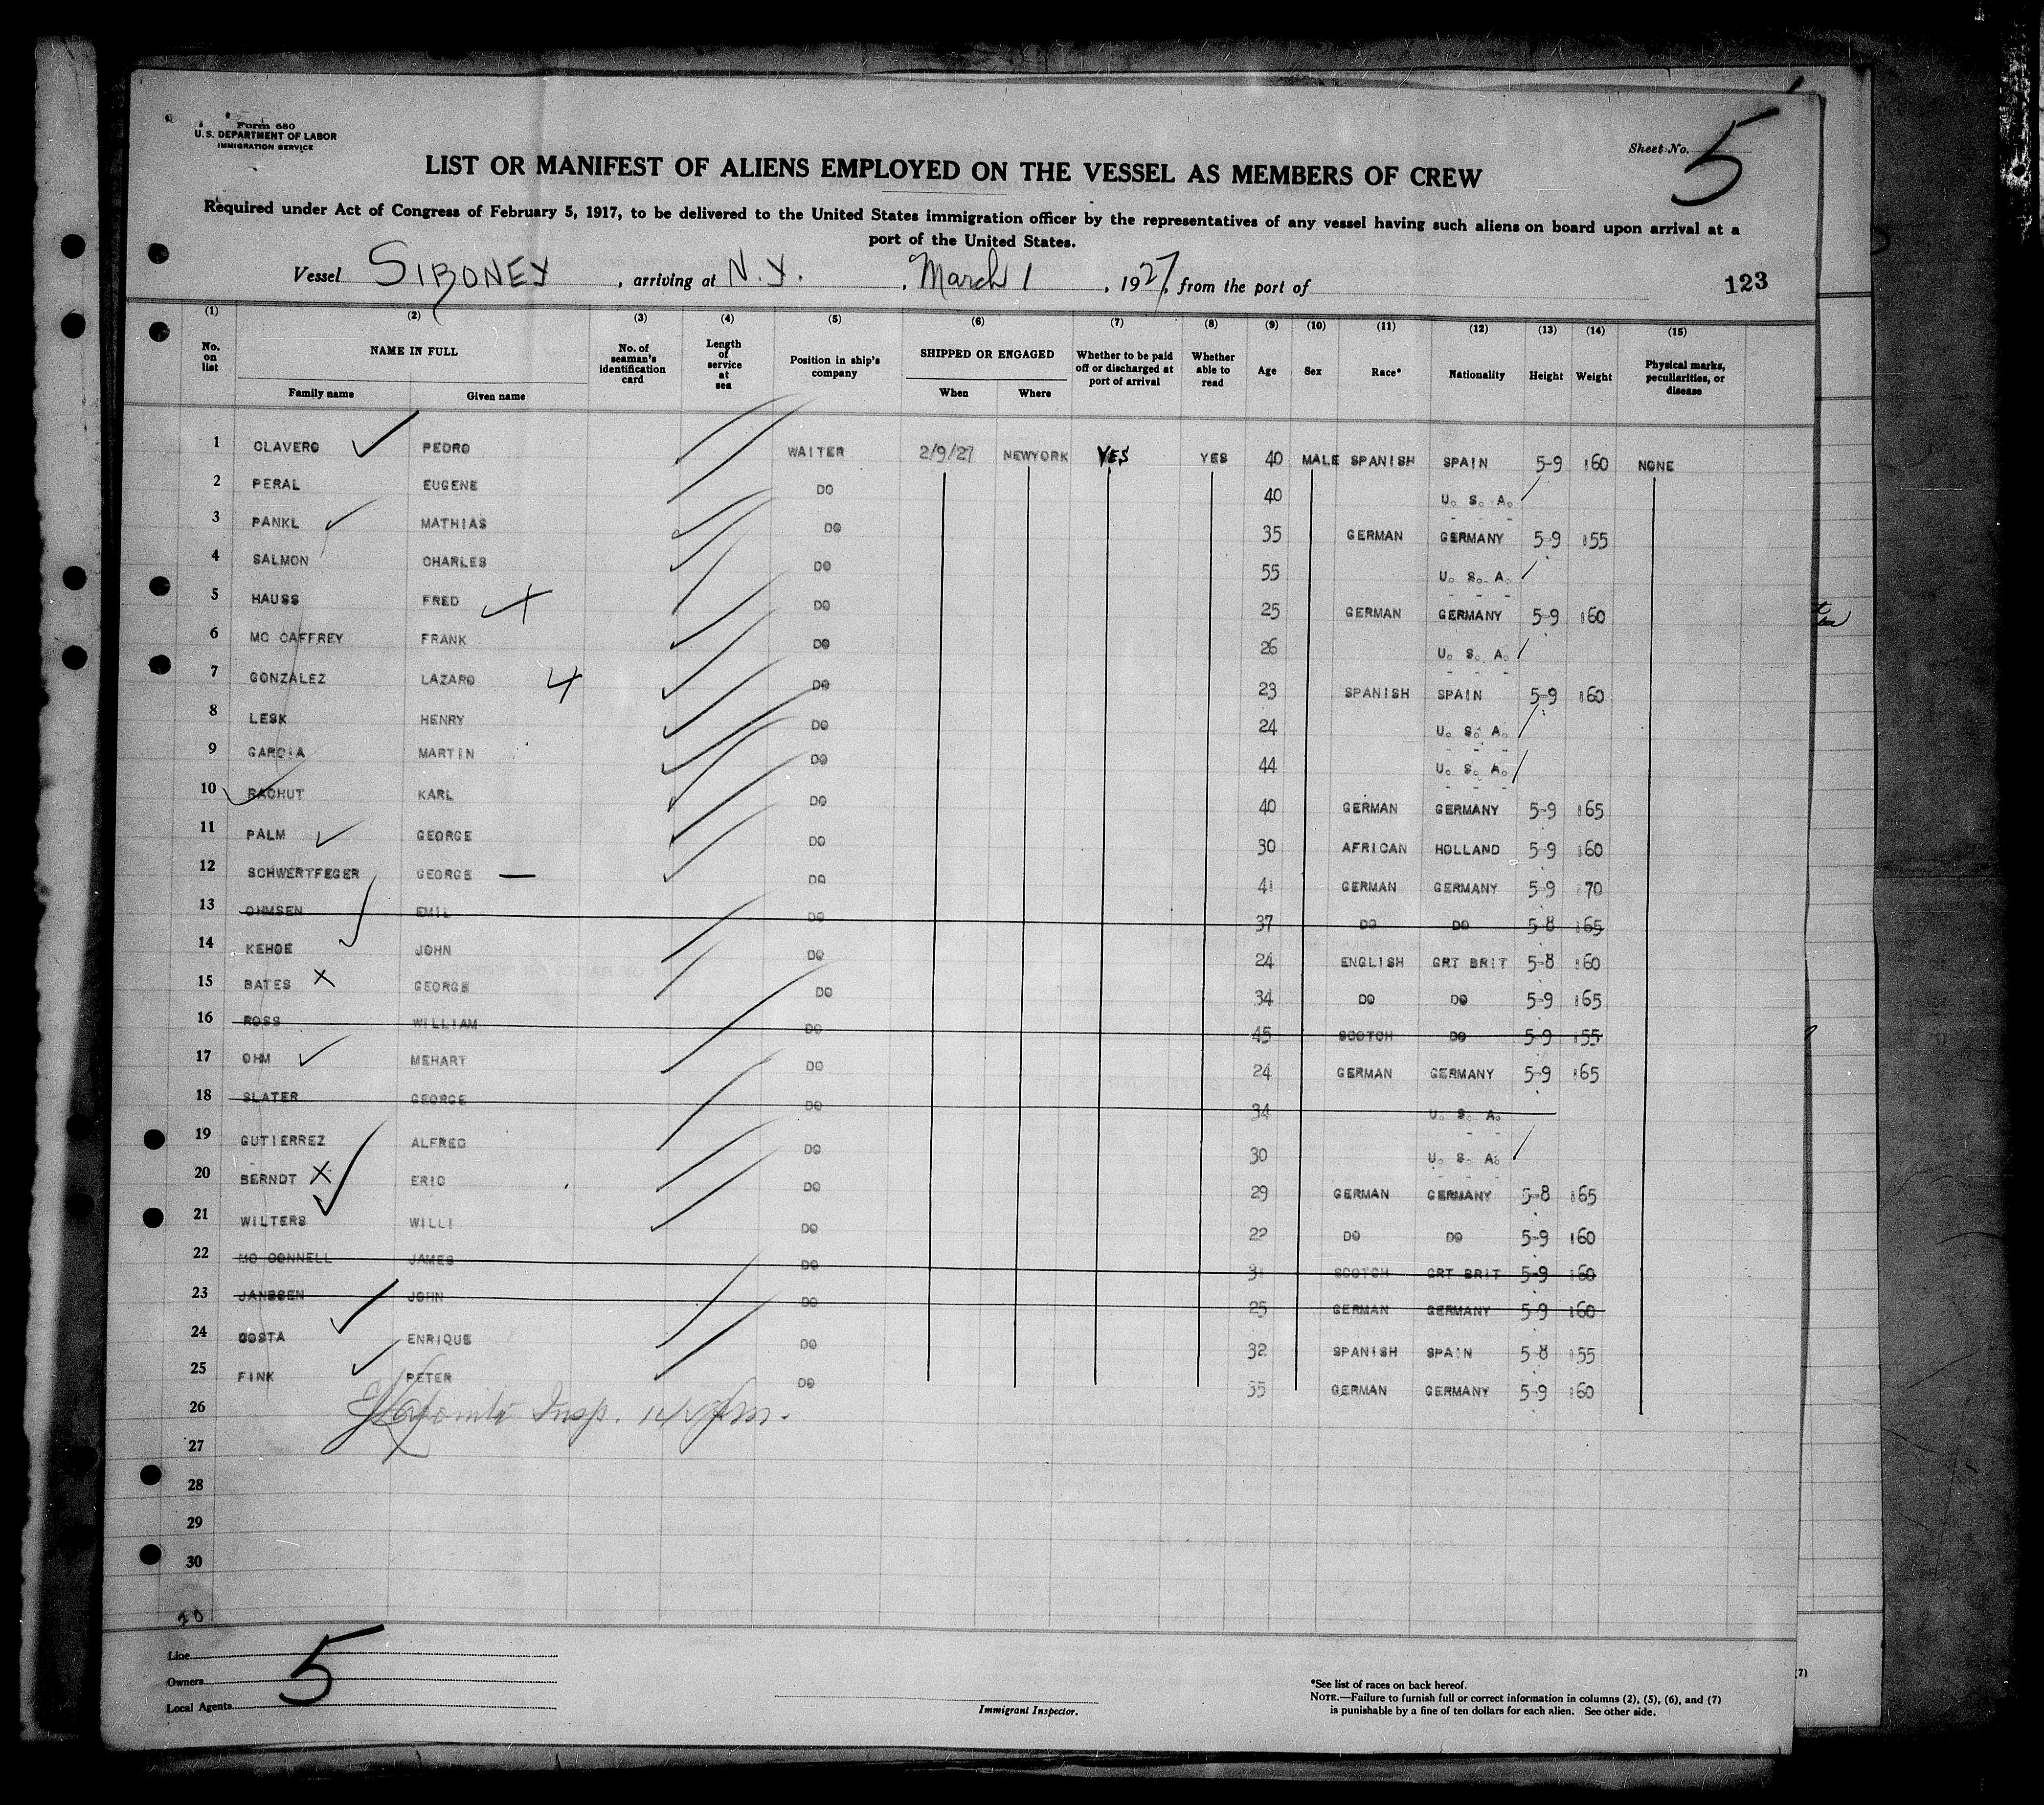 Form 680
U.S. DEPARTMENT OF LABOR
IMMIGRATION SERVICE
Sheet No. 5
LIST OR MANIFEST OF ALIENS EMPLOYED ON THE VESSEL AS MEMBERS OF CREW
Required under Act of Congress of February 5, 1917, to be delivered to the United States immigration officer by the representatives of any vessel having such aliens on board upon arrival at a
port of the United States.
Vessel SIBONEY, arriving at N.Y., March 1, 1927, from the port of
123
(1) (2) (3) (4) (5) (6) (7) (8) (9) (10) (11) (12) (13) (14) (15)
No. on list NAME IN FULL Family name Given name No. of seaman's identification card Length of service at sea Position in ship's company SHIPPED OR ENGAGED When Where Whether to be paid off or discharged at port of arrival Whether able to read Age Sex Race* Nationality Height Weight Physical marks, peculiarities, or disease
1 CLAVERO PEDRO WAITER 2/9/27 NEWYORK YES YES 40 MALE SPANISH SPAIN 5-9 160 NONE
2 PERAL EUGENE DO 40 U. S. A.
3 PANKL MATHIAS DO 35 GERMAN GERMANY 5-9 155
4 SALMON CHARLES DO 55 U. S. A.
5 HAUSS FRED DO 25 GERMAN GERMANY 5-9 160
6 MC CAFFREY FRANK DO 26 U. S. A.
7 GONZALEZ LAZARO 4 DO 23 SPANISH SPAIN 5-9 160
8 LESK HENRY DO 24 U. S. A.
9 GARCIA MARTIN DO 44 U. S. A.
10 RACHUT KARL DO 40 GERMAN GERMANY 5-9 165
11 PALM GEORGE DO 30 AFRICAN HOLLAND 5-9 160
12 SCHWERTFEGER GEORGE DO 41 GERMAN GERMANY 5-9 170
13 OHMSEN EMIL DO 37 DO DO 5-8 165
14 KEHOE JOHN DO 24 ENGLISH GRT BRIT 5-8 160
15 BATES X GEORGE DO 34 DO DO 5-9 165
16 ROSS WILLIAM DO 45 SCOTCH DO 5-9 155
17 OHM MEHART DO 24 GERMAN GERMANY 5-9 165
18 SLATER GEORGE DO 34 U. S. A.
19 GUTIERREZ ALFRED DO 30 U. S. A.
20 BERNDT X ERIC DO 29 GERMAN GERMANY 5-8 165
21 WILTERS WILLI DO 22 DO DO 5-9 160
22 MC CONNELL JAMES DO 31 SCOTCH GRT BRIT 5-9 160
23 JANSSEN JOHN DO 25 GERMAN GERMANY 5-9 160
24 COSTA ENRIQUE DO 32 SPANISH SPAIN 5-8 155
25 FINK PETER DO 35 GERMAN GERMANY 5-9 160
26 Insp.
27
28
29
30
Line
Owners
Local Agents
5
Immigrant Inspector.
*See list of races on back hereof.
NOTE.—Failure to furnish full or correct information in columns (2), (5), (6), and (7)
is punishable by a fine of ten dollars for each alien. See other side.
(7)